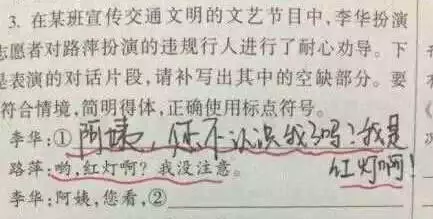 3. 在某班宣传交通文明的文艺节目中,李华扮演
志愿者对路萍扮演的违规行人进行了耐心劝导。下
是表演的对话片段,请补写出其中的空缺部分。要
符合情境,简明得体,正确使用标点符号。
李华:①阿姨,您不认识我了吗?我是
路萍:哟,红灯啊?我没注意。 红灯啊!
李华:阿姨,您看,②